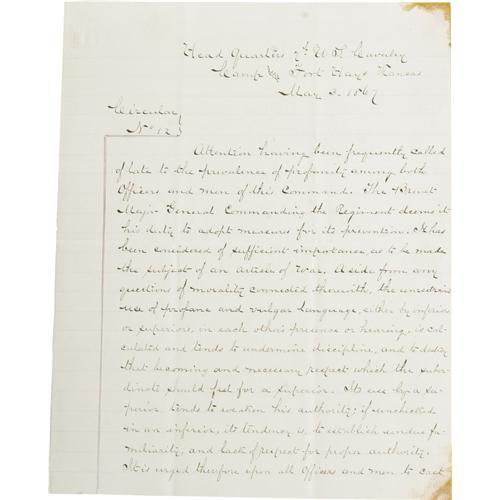 Head Quarters 7th U.S. Cavalry
Camp near Fort Hays Kansas
May 2. 1867
Circular
No 12
Attention having been frequently called
of late to the prevalence of profanity among both
Officers and men of this Command. The Brevet
Major General Commanding the Regiment deems it
his duty to adopt measures for its prevention. It has
been considered of sufficient importance, as to be made
the subject of an article of War. Aside from any
questions of morality connected therewith, the unrestrained
use of profane and vulgar language, either by inferiors
or superiors, in each other's presence or hearing, is cal-
culated and tends to undermine discipline, and to destroy
that becoming and necessary respect which the subor-
dinate should feel for a superior. Its use by a su-
perior, tends to weaken his authority; if unchecked
in an inferior, its tendency is, to establish undue fa-
miliarity, and lack of respect for proper authority.
It is urged therefore upon all Officers and men to cast